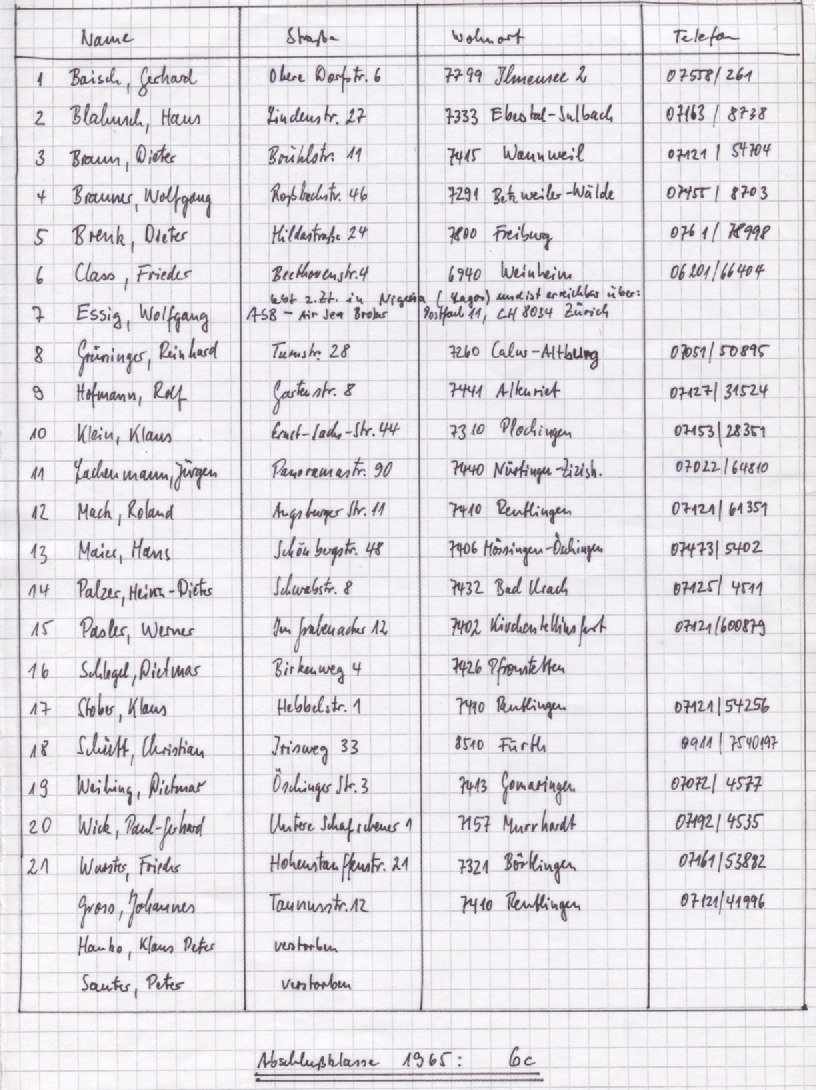 Name Straße Wohnort Telefon
1 Baisch, Gerhard Obere Dorfstr. 6 7799 Illmensee 2 07558/261
2 Blabusch, Haus Lindenstr. 27 7333 Ebestal-Sulbach 07163 / 8738
3 Braun, Dieter Brühlstr. 11 7415 Wannweil 07121 / 54704
4 Brauner, Wolfgang Roßbachstr. 46 7291 Betzweiler-Wälde 07455 / 8703
5 Brenk, Dieter Hildastraße 24 7800 Freiburg 0761 / 78998
6 Class, Frieder Beethovenstr. 4 6940 Weinheim 06201/66404
lebt z.Zt. in Nigeria (Lagos) und ist erreichbar über:
7 Essig, Wolfgang ASB - Air Sea Broker Postfach 11, CH 8034 Zürich
8 Grüninger, Reinhard Turnstr. 28 7260 Calw-Altburg 07051/50895
9 Hofmann, Rolf Gartenstr. 8 7441 Altenriet 07127/31524
10 Klein, Klaus Ernst-Sachs-Str. 44 7310 Plochingen 07153/28351
11 Lachenmann, Jürgen Panoramastr. 90 7440 Nürtingen-Zizish. 07022/64810
12 Mack, Roland Augsburger Str. 11 7410 Reutlingen 07121/61351
13 Maier, Hans Schönbergstr. 48 7406 Mössingen-Öschingen 07473/5402
14 Palzer, Heinz-Dieter Schwabstr. 8 7432 Bad Urach 07125/ 4511
15 Pasler, Werner Im Grabenacker 12 7402 Kirchentellinsfurt 07121/600879
16 Schlegel, Dietmar Birkenweg 4 7426 Pfronstetten
17 Stober, Klaus Hebbelstr. 1 7410 Reutlingen 07121/54256
18 Schütt, Christian Irisweg 33 8510 Fürth 0911 / 7540197
19 Weihing, Dietmar Öschinger Str. 3 7413 Gomaringen 07072/ 4577
20 Wick, Paul-Gerhard Untere Schafscheuer 1 7157 Murrhardt 07192/4535
21 Wurster, Frieder Hohenstaufenstr. 21 7321 Börtlingen 07161/53882
Gross, Johannes Taunusstr. 12 7410 Reutlingen 07121/41996
Klaus Peter verstorben
Sauter, Peter verstorben
Abschlußklasse 1965: 6c